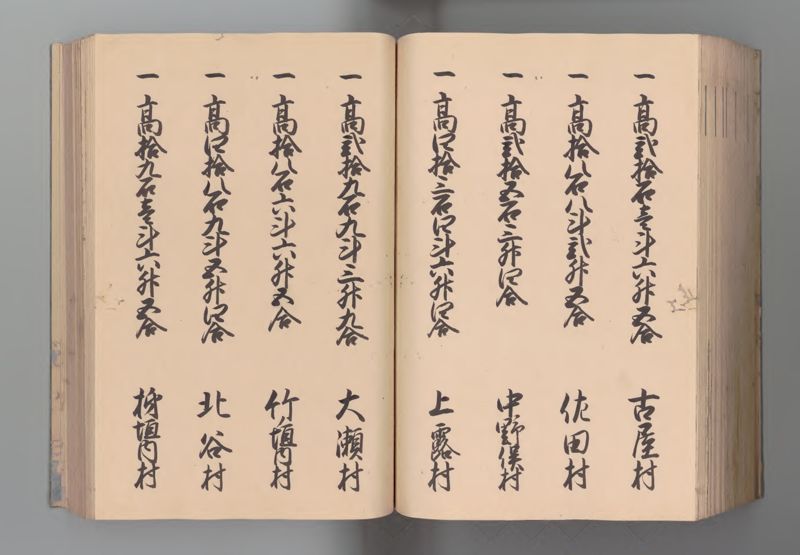 一 高弐拾石壱斗六升五合 古屋村
一 高拾八石八斗弐升五合 佐田村
一 高弐拾五石三升四合 中野俣村
一 高四拾三石四斗六升四合 上露村
一 高弐拾九石九斗三升九合 大瀬村
一 高拾八石六斗六升五合 竹垣内村
一 高四拾八石九斗五升四合 北谷村
一 高拾九石壱斗六升五合 垣内村